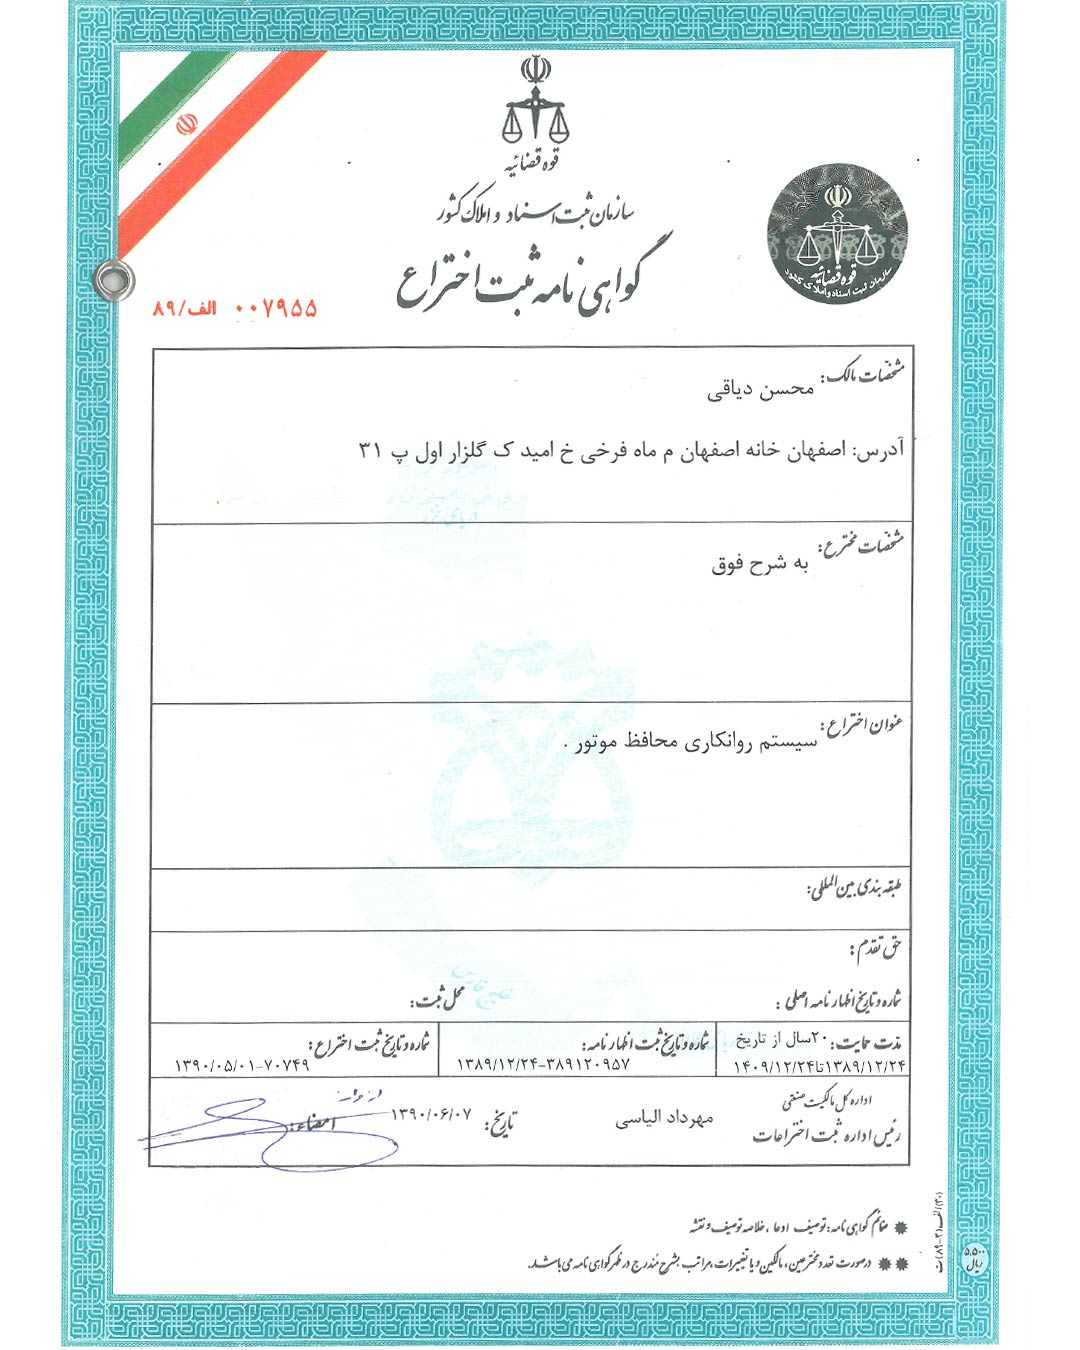 قوه قضائیه
سازمان ثبت اسناد و املاک کشور
گواهی نامه ثبت اختراع
قوه قضائیه
سازمان ثبت اسناد و املاک کشور
الف/۸۹ ۰۰۷۹۵۵
مشخصات مالک: محسن دیاقی
آدرس: اصفهان خانه اصفهان م ماه فرخی خ امید ک گلزار اول پ ۳۱
دریای خزر
مشخصات مخترع: به شرح فوق
عنوان اختراع: سیستم روانکاری محافظ موتور .
طبقه بندی بین المللی:
حق تقدم:
شماره و تاریخ اظهار نامه اصلی: محل ثبت:
خلیج فارس
مدت حمایت: ۲۰سال از تاریخ
۱۳۸۹/۱۲/۲۴تا۱۴۰۹/۱۲/۲۴
شماره و تاریخ ثبت اظهار نامه:
۱۳۸۹/۱۲/۲۴-۳۸۹۱۲۰۹۵۷
شماره و تاریخ ثبت اختراع:
۱۳۹۰/۰۵/۰۱-۷۰۷۴۹
اداره کل مالکیت صنعتی
رئیس اداره ثبت اختراعات مهرداد الیاسی تاریخ: ۱۳۹۰/۰۶/۰۷ امضاء:
✹ ضمائم گواهی نامه: توصیف ادعا، خلاصه توصیف و نقشه
✹✹ در صورت تعدد مخترعین، مالکین و یا تغییرات، مراتب بشرح مندرج در ظهر گواهی نامه می باشد.
۵،۵۰۰
ریال